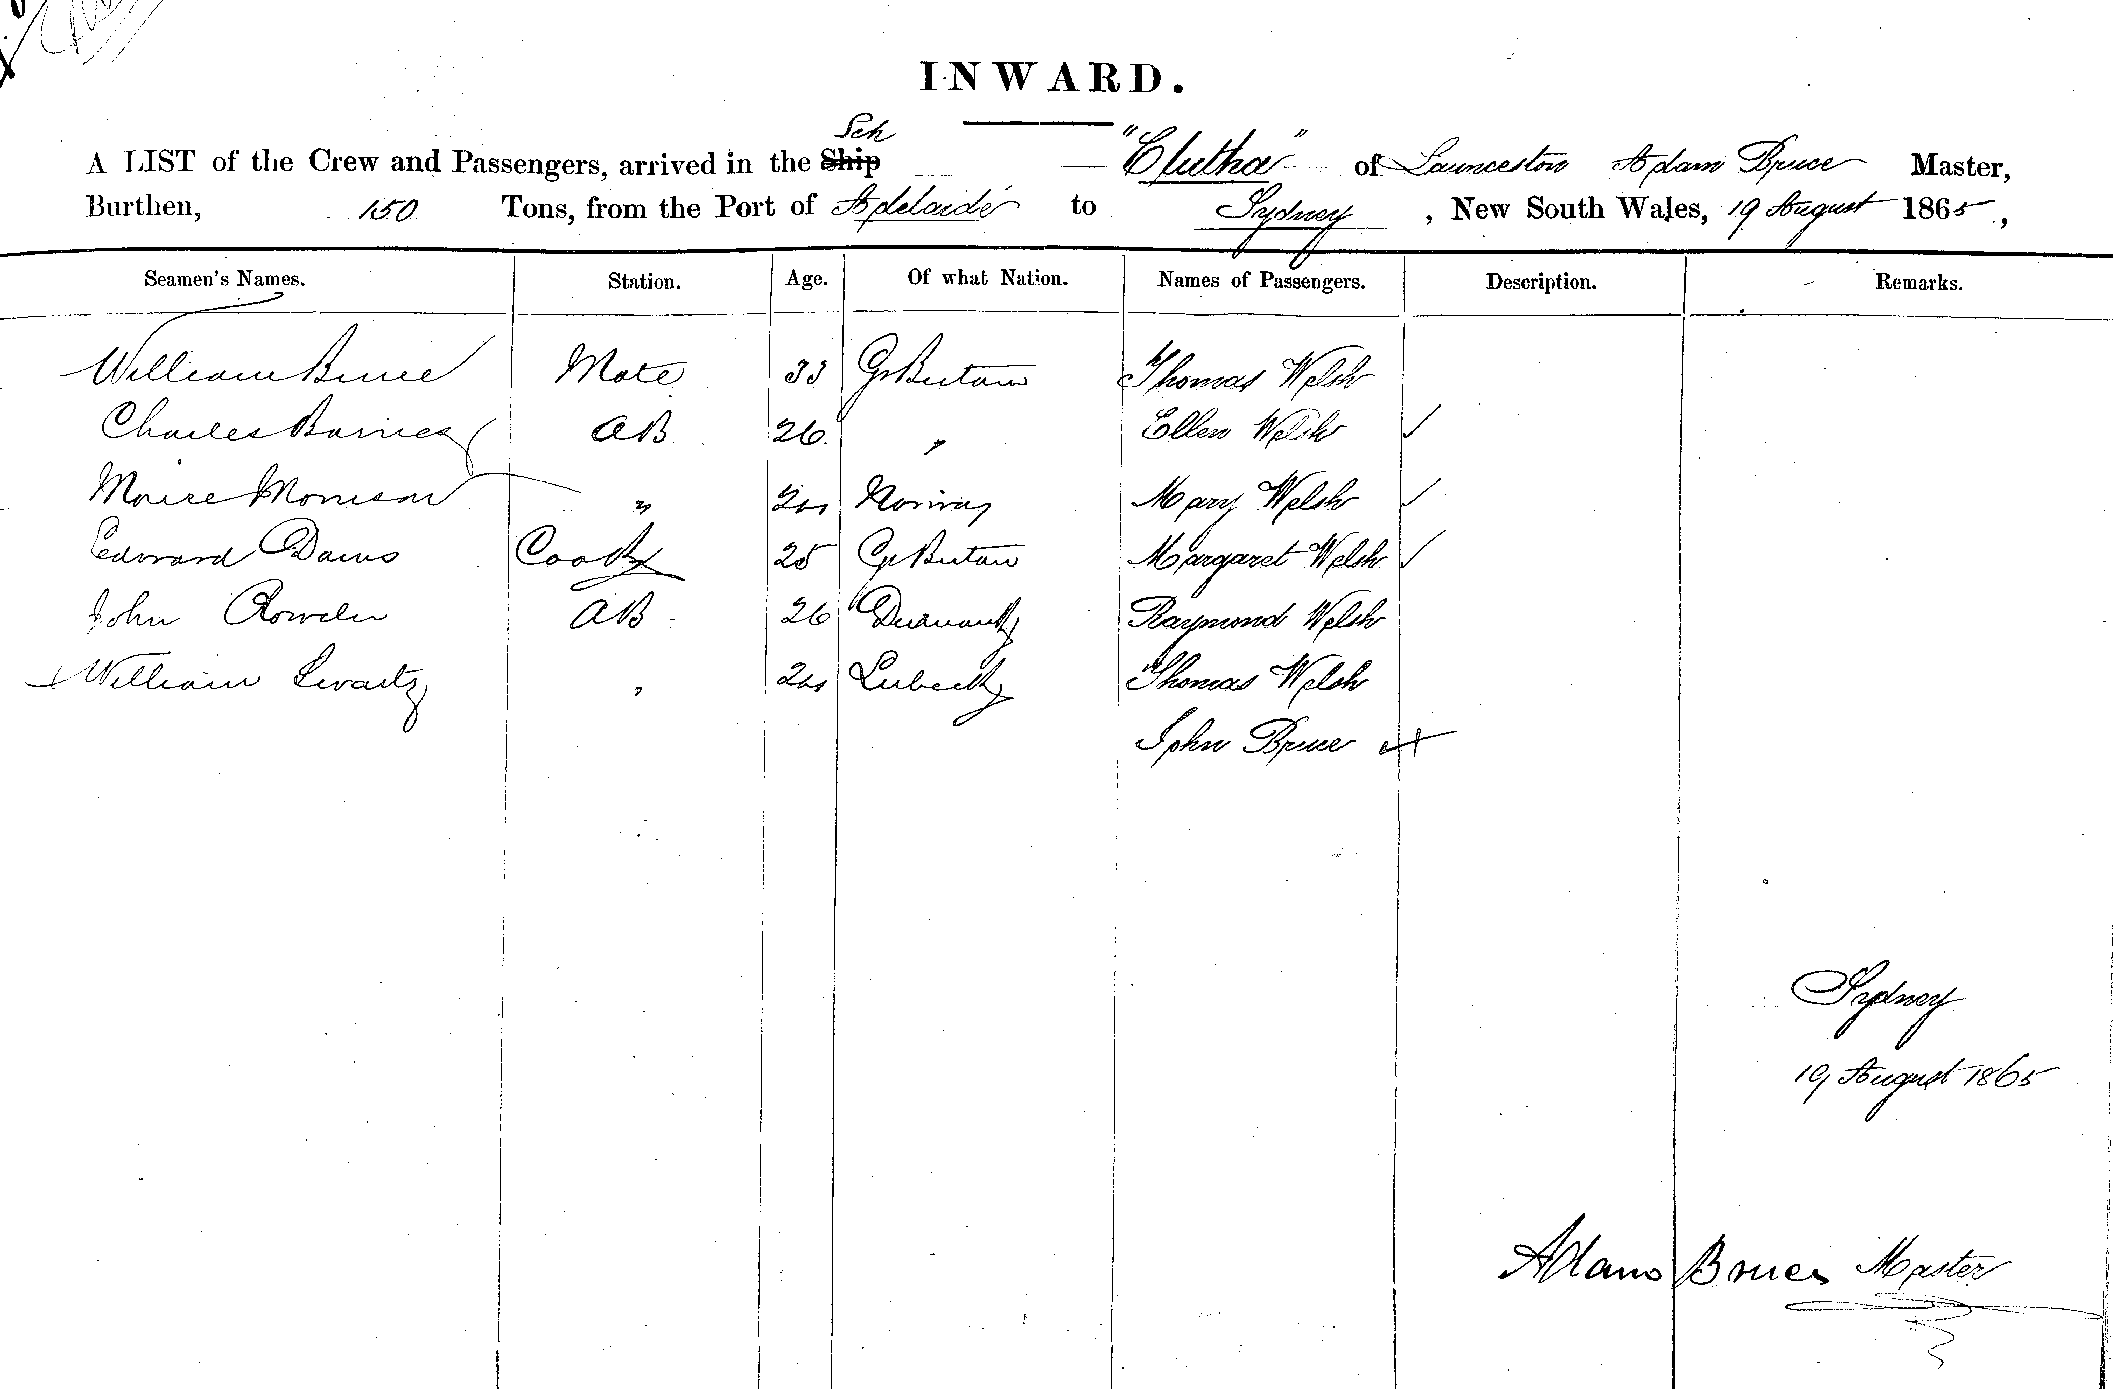 INWARD.
Sch
A LIST of the Crew and Passengers, arrived in the Ship "Clutha" of Launceston Adam Bruce Master,
Burthen, 150 Tons, from the Port of Adelaide to Sydney, New South Wales, 19 August 1865,
Seamen's Names. Station. Age. Of what Nation. Names of Passengers. Description. Remarks.
William Bruce Mate 33 Gt Britain Thomas Welsh
Charles Barnes AB 26 " Ellen Welsh ✓
Morrison " 24 Norway Mary Welsh ✓
Edward Davis Cook 25 Gt Britain Margaret Welsh ✓
John Rowden AB 26 Denmark Raymond Welsh
William Swartz " 24 Lubeck Thomas Welsh
John Bruce
Sydney
19 August 1865
Adam Bruce Master